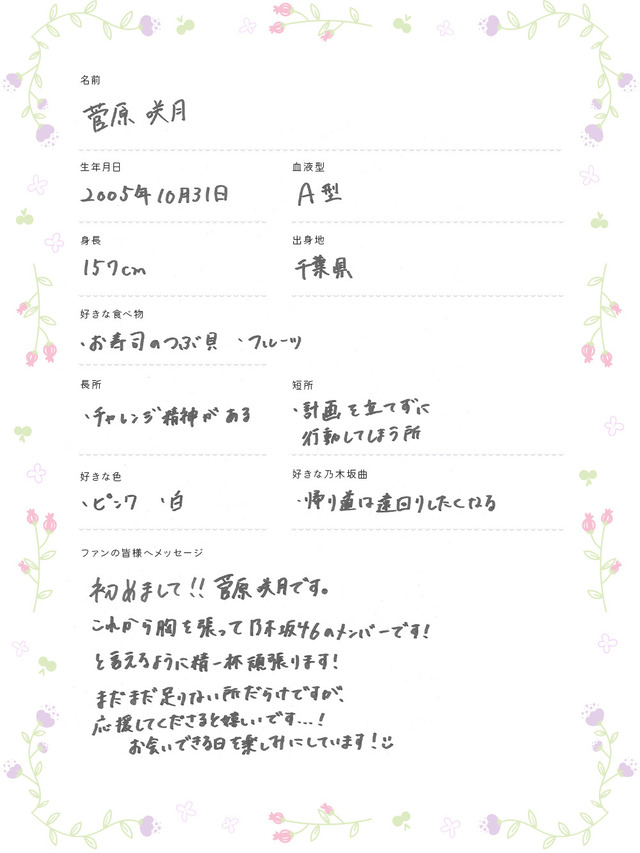 名前
菅原 咲月
生年月日 血液型
2005年10月31日 A型
身長 出身地
157cm 千葉県
好きな食べ物
・お寿司のつぶ貝 ・フルーツ
長所 短所
・チャレンジ精神がある ・計画を立てずに
行動してしまう所
好きな色 好きな乃木坂曲
・ピンク ・白 ・帰り道は遠回りしたくなる
ファンの皆様へメッセージ
初めまして!! 菅原 咲月です。
これから胸を張って乃木坂46のメンバーです!
と言えるように精一杯頑張ります!
まだまだ足りない所だらけですが、
応援してくださると嬉しいです...!
お会いできる日を楽しみにしています!